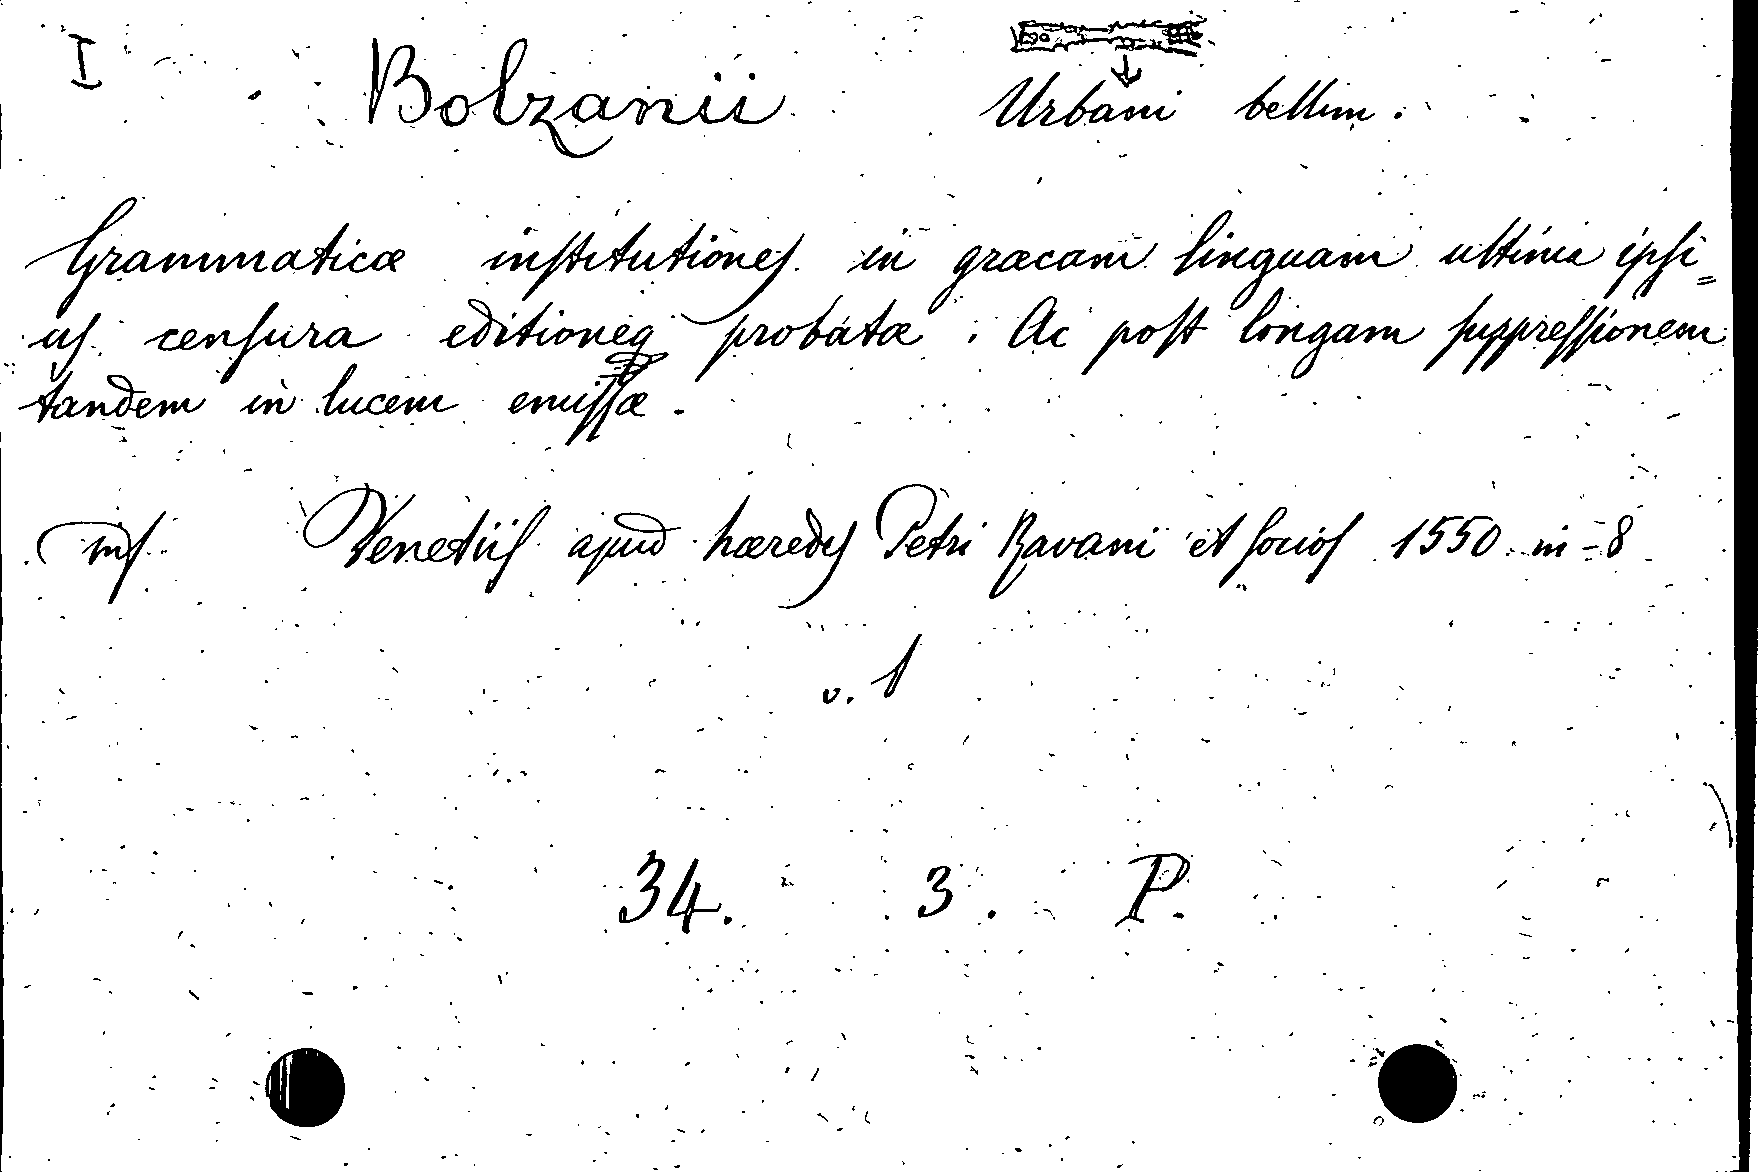 I
Bolzanii Urbani bellun.
Grammaticæ institutiones in græcam linguam ultima ipsi=
us censura editioneq probatæ. Ac post longam suppressionem
tandem in lucem emissæ.
ins Venetiis apud hæredes Petri Ravani et socios 1550 in-8
v. 1
34. 3. P.